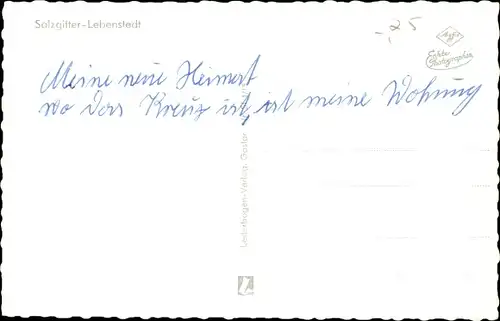 Salzgitter-Lebenstedt
-,25
Agfa
Echte
Photographie
Meine neue Heimat
wo das Kreuz ist, ist meine Wohnung
Lederbogen-Verlag, Goslar